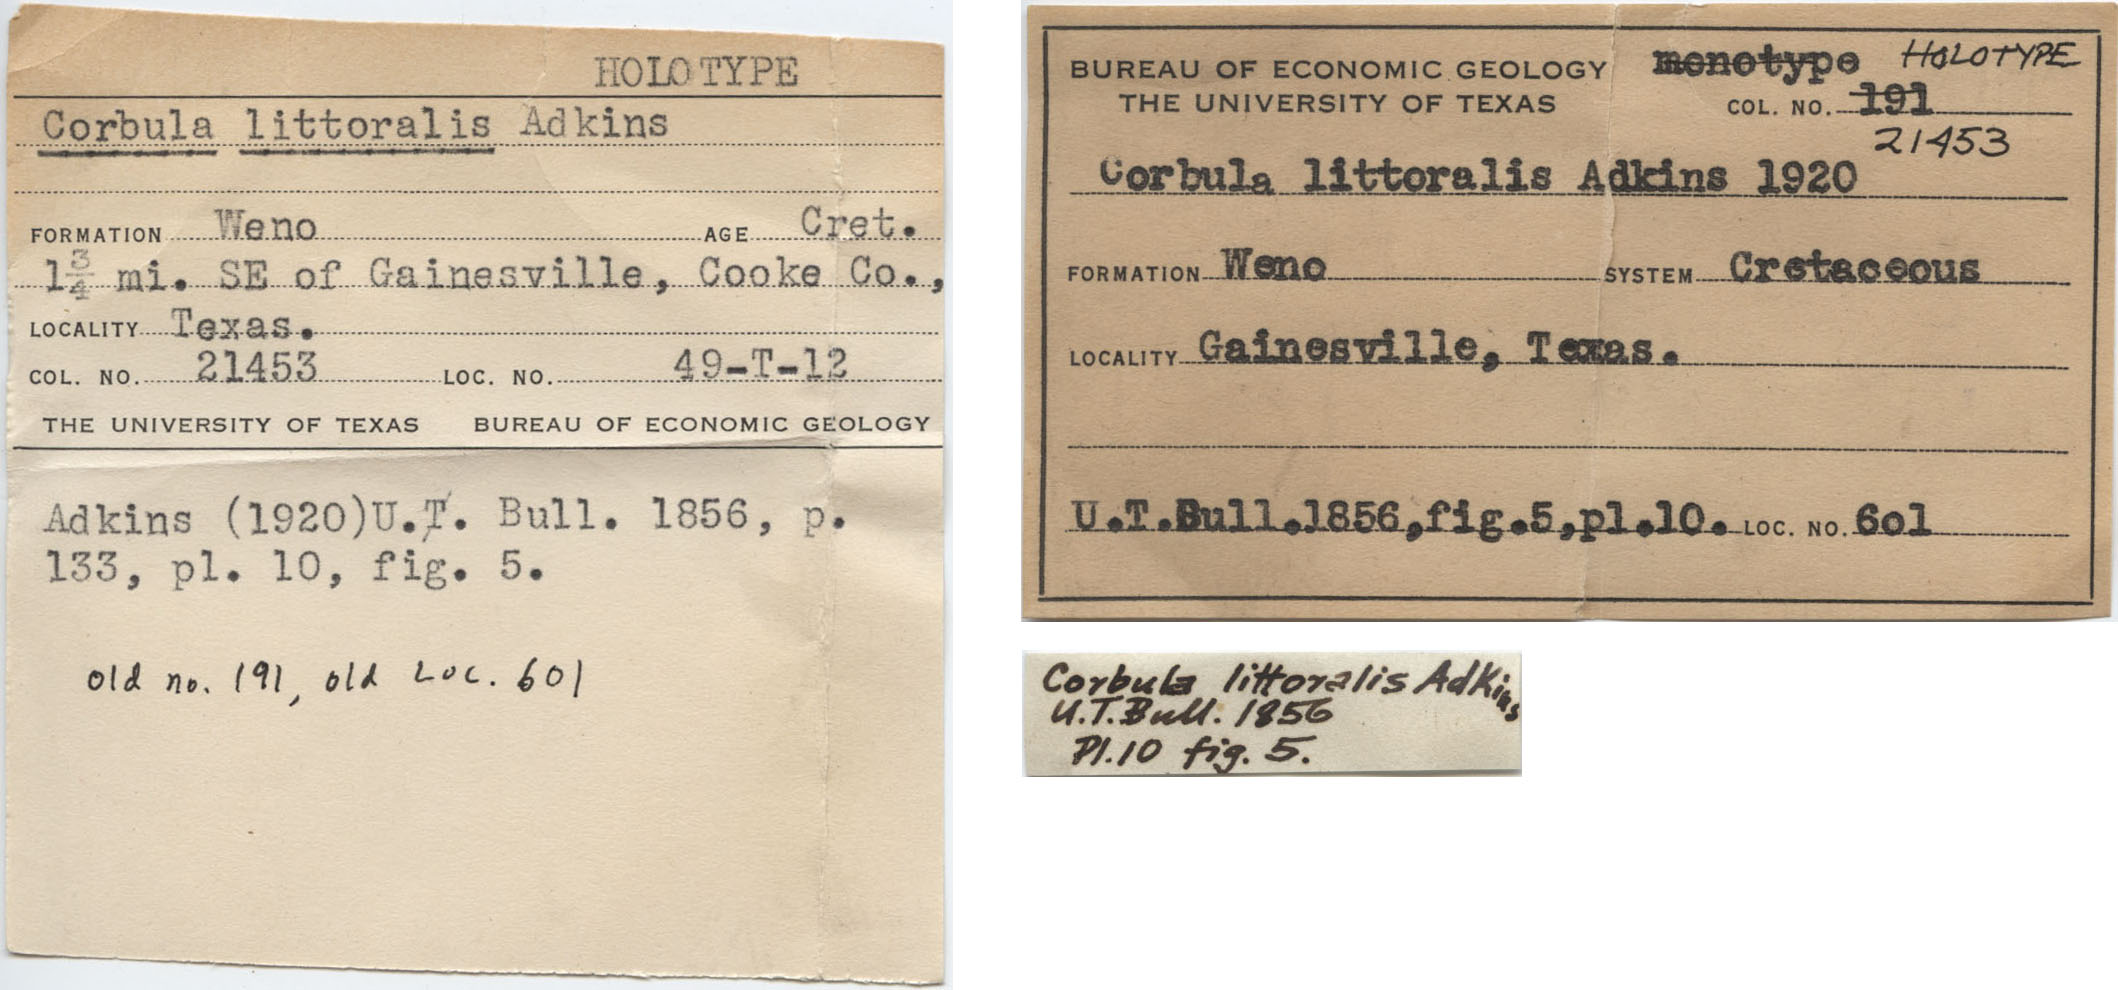 HOLOTYPE
Corbula littoralis Adkins
FORMATION Weno AGE Cret.
1 3/4 mi. SE of Gainesville, Cooke Co.,
LOCALITY Texas.
COL. NO. 21453 LOC. NO. 49-T-12
THE UNIVERSITY OF TEXAS BUREAU OF ECONOMIC GEOLOGY
Adkins (1920)U.T. Bull. 1856, p.
133, pl. 10, fig. 5.
old no. 191, old Loc. 601
BUREAU OF ECONOMIC GEOLOGY monotype HOLOTYPE
THE UNIVERSITY OF TEXAS COL. NO. 191
21453
Corbula littoralis Adkins 1920
FORMATION Weno SYSTEM Cretaceous
LOCALITY Gainesville, Texas.
U.T.Bull.1856,fig.5,pl.10. LOC. NO. 6o1
Corbula littoralis Adkins
U.T.Bull. 1856
Pl.10 fig. 5.